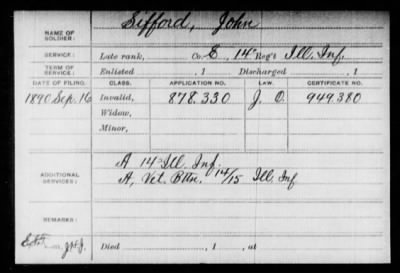 NAME OF SOLDIER: Sifford, John
SERVICE: Late rank, Co. E, 14" Reg't Ill. Inf.
TERM OF SERVICE: Enlisted , 1 Discharged , 1
DATE OF FILING. CLASS. APPLICATION NO. LAW. CERTIFICATE NO.
1890 Sep. 16 Invalid, 878.330 J. O. 949.380
Widow,
Minor,
ADDITIONAL SERVICES: A 14 Ill. Inf.
A, Vet. Bttn. 14/15 Ill. Inf
REMARKS:
Died , 1 , at